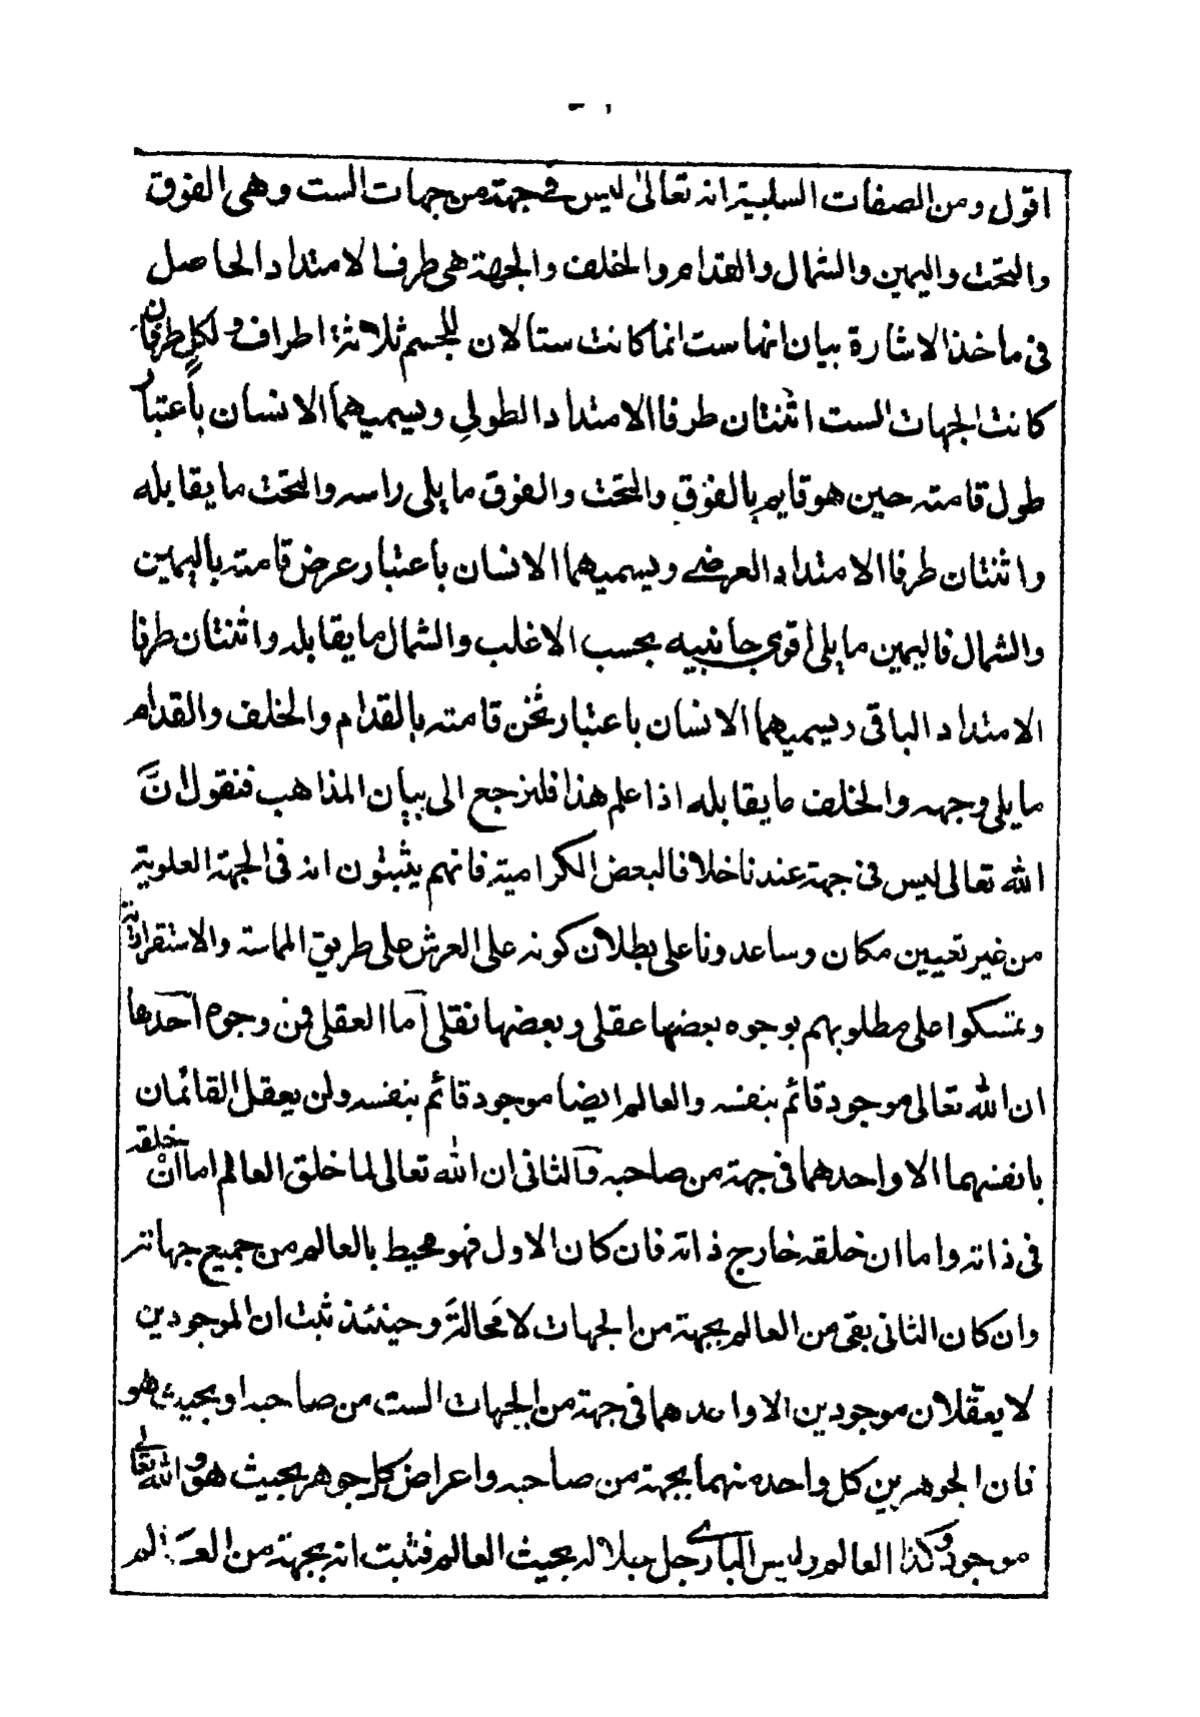 اقول ومن الصفات السلبية انه تعالى ليس فى جهة من جهات الست وهى الفوق
والتحت واليمين والشمال والقدام والخلف والجهة هى طرفا لامتداد الحاصل
فى ماخذ الاشارة بيان انها ست انما كانت ستا لان للجسم ثلاثة اطراف ولكل طرفان
كانت الجهات الست اثنتان طرفا الامتداد الطولي ويسميهما الانسان باعتبار
طول قامته حين هو قايم بالفوق والتحت والفوق ما يلى راسه والتحت ما يقابله
واثنتان طرفا الامتداد العرضے ويسميهما الانسان باعتبار عرض قامته باليمين
والشمال فاليمين ما يلى اقوى جانبيه بحسب الاغلب والشمال ما يقابله واثنتان طرفا
الامتداد الباقى ويسميهما الانسان باعتبار ثخن قامته بالقدام والخلف والقدام
ما يلى وجهه والخلف ما يقابله اذا علم هذا فلنرجع الى بيان المذاهب فنقول انَّ
الله تعالى ليس فى جهة عندنا خلافا لبعض الكرامية فانهم يثبتون انه فى الجهة العلوية
من غير تعيين مكان وساعدونا على بطلان كونه على العرش على طريق المماسة والاستقرار
وتمسكوا على مطلوبهم بوجوه بعضها عقلى وبعضها نقلى اما العقلى فمن وجوه احدها
ان الله تعالى موجود قائم بنفسه والعالم ايضا موجود قائم بنفسه ولن يعقل القائمان
بانفسهما الا واحدهما فى جهة من صاحبه والثانى ان الله تعالى لما خلق العالم اما انْ خلقه
فى ذاته واما ان خلقه خارج ذاته فان كان الاول فهو محيط بالعالم من جميع جهاته
وان كان الثانى بقى من العالم بجهة من الجهات لا مَحالةَ وحينئذ ثبت ان الموجودين
لا يعقلان موجودين الا واحدهما فى جهة من الجهات الست من صاحبه او بحيث هو
فان الجوهرين كل واحد منهما بجهة من صاحبه واعراض كل جوهر بحيث هو والله تعالى
موجود وكذا العالم وليس البارے جل جلاله بحيث العالم فثبت انه بجهة من العالم